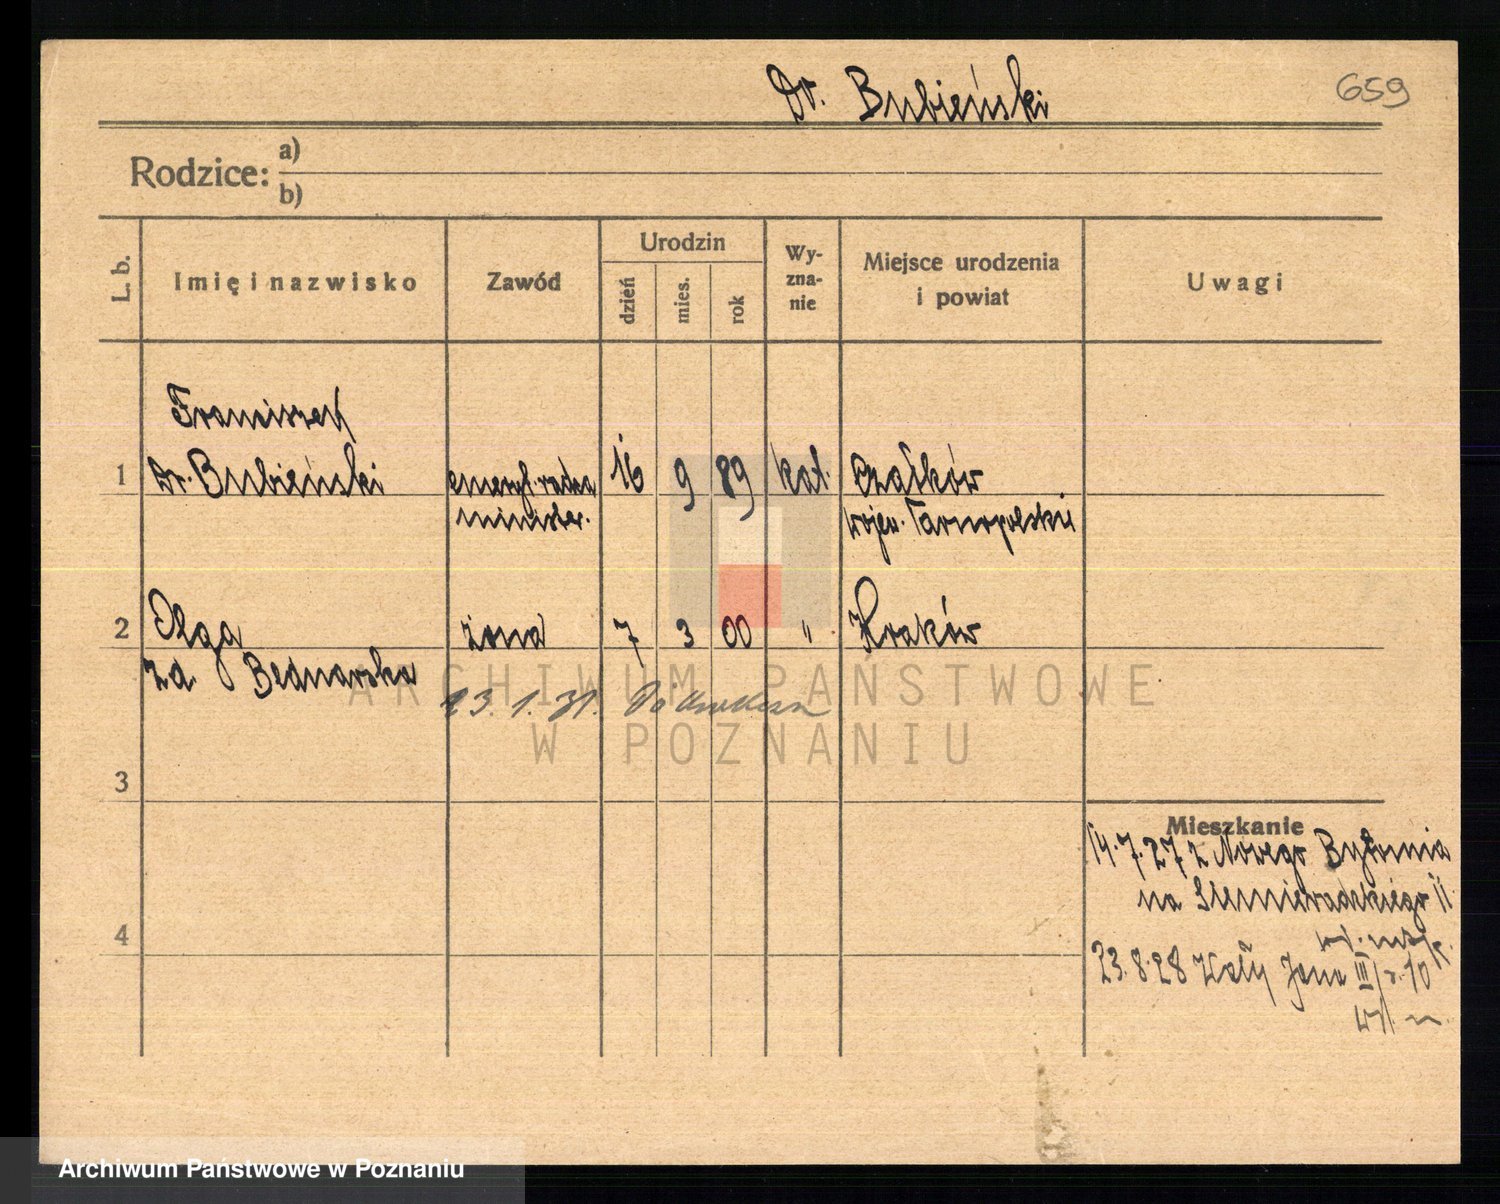 Dr. Bubieński
659
Rodzice: a)
b)
L. b.
Imię i nazwisko
Zawód
Urodzin
dzień
mies.
rok
Wy-
zna-
nie
Miejsce urodzenia
i powiat
Uwagi
Franciszek
1 Dr. Bubieński emeryt. radca 16 9 89 kat.
minister. wojew. Tarnopolskie
2 Olga żona 7 3 00 " Kraków
zd. Bednarska
23. 1. 31.
ARCHIWUM PAŃSTWOWE
W POZNANIU
3
Mieszkanie
14.7.27 z Nowego Bytomia
na Siemieradzkiego 11
4
23.8.28 Wały Jana III 10
Archiwum Państwowe w Poznaniu